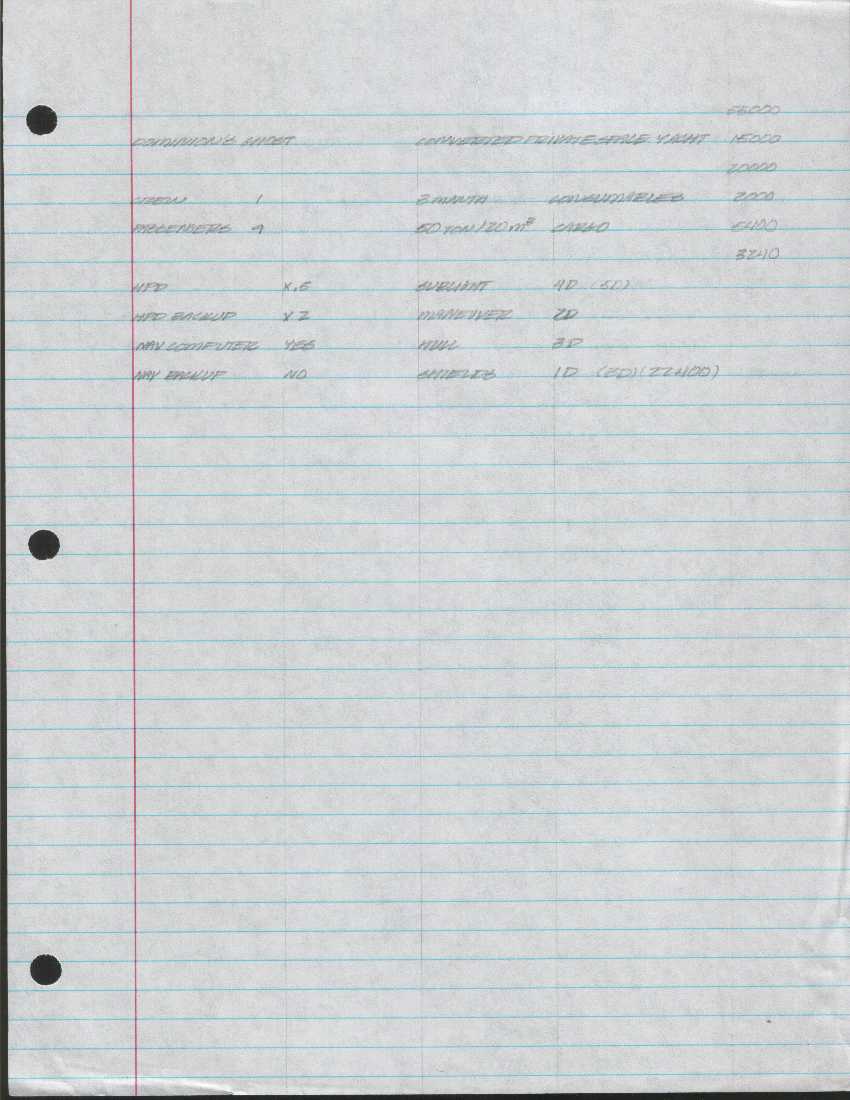 55000
DOMINION'S GHOST CONVERTED PRIVATE SPACE YACHT 15000
20000
CREW 1 3 MONTH CONSUMABLES 2000
PASSENGERS 9 50 TON / 20 m³ CARGO 5400
3240
HPD X.5 SUBLIGHT 4D (5D)
HPD BACKUP X 2 MANEUVER 2D
NAV COMPUTER YES HULL 3D
NAV BACKUP NO SHIELDS 1D (2D) (22400)